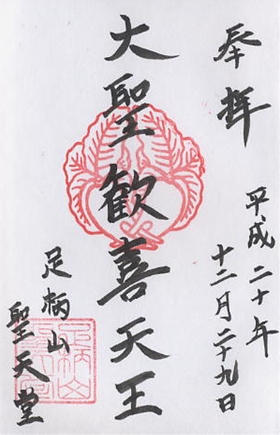 奉拝
平成二十年
十二月二十九日
大聖歓喜天王
足柄山
聖天堂